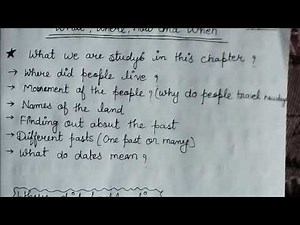 What, Where, How and When
★ What we are study's in this chapter?
→ Where did people live?
→ Movement of the people? (why do people travel nowadays
→ Names of the land
→ Finding out about the past
→ Different pasts (One past or many)
→ What do dates mean?